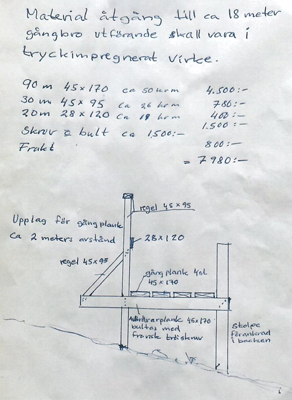 Material åtgång till ca 18 meter
gångbro utförande skall vara i
tryckimpregnerat virke.
90 m 45x170 ca 50 kr m 4.500:-
30 m 45x95 ca 26 kr m 780:-
20 m 28x120 ca 18 kr m 400:-
Skruv & bult ca 1500:- 1.500:-
Frakt 800:-
= 7980:-
regel 45x95
Upplag för gångplank
ca 2 meters avstånd
28x120
regel 45x95
gångplank 4st
45x170
plank 45x170
bultas med
fransk träskruv
Stolpe
förankrad
i backen